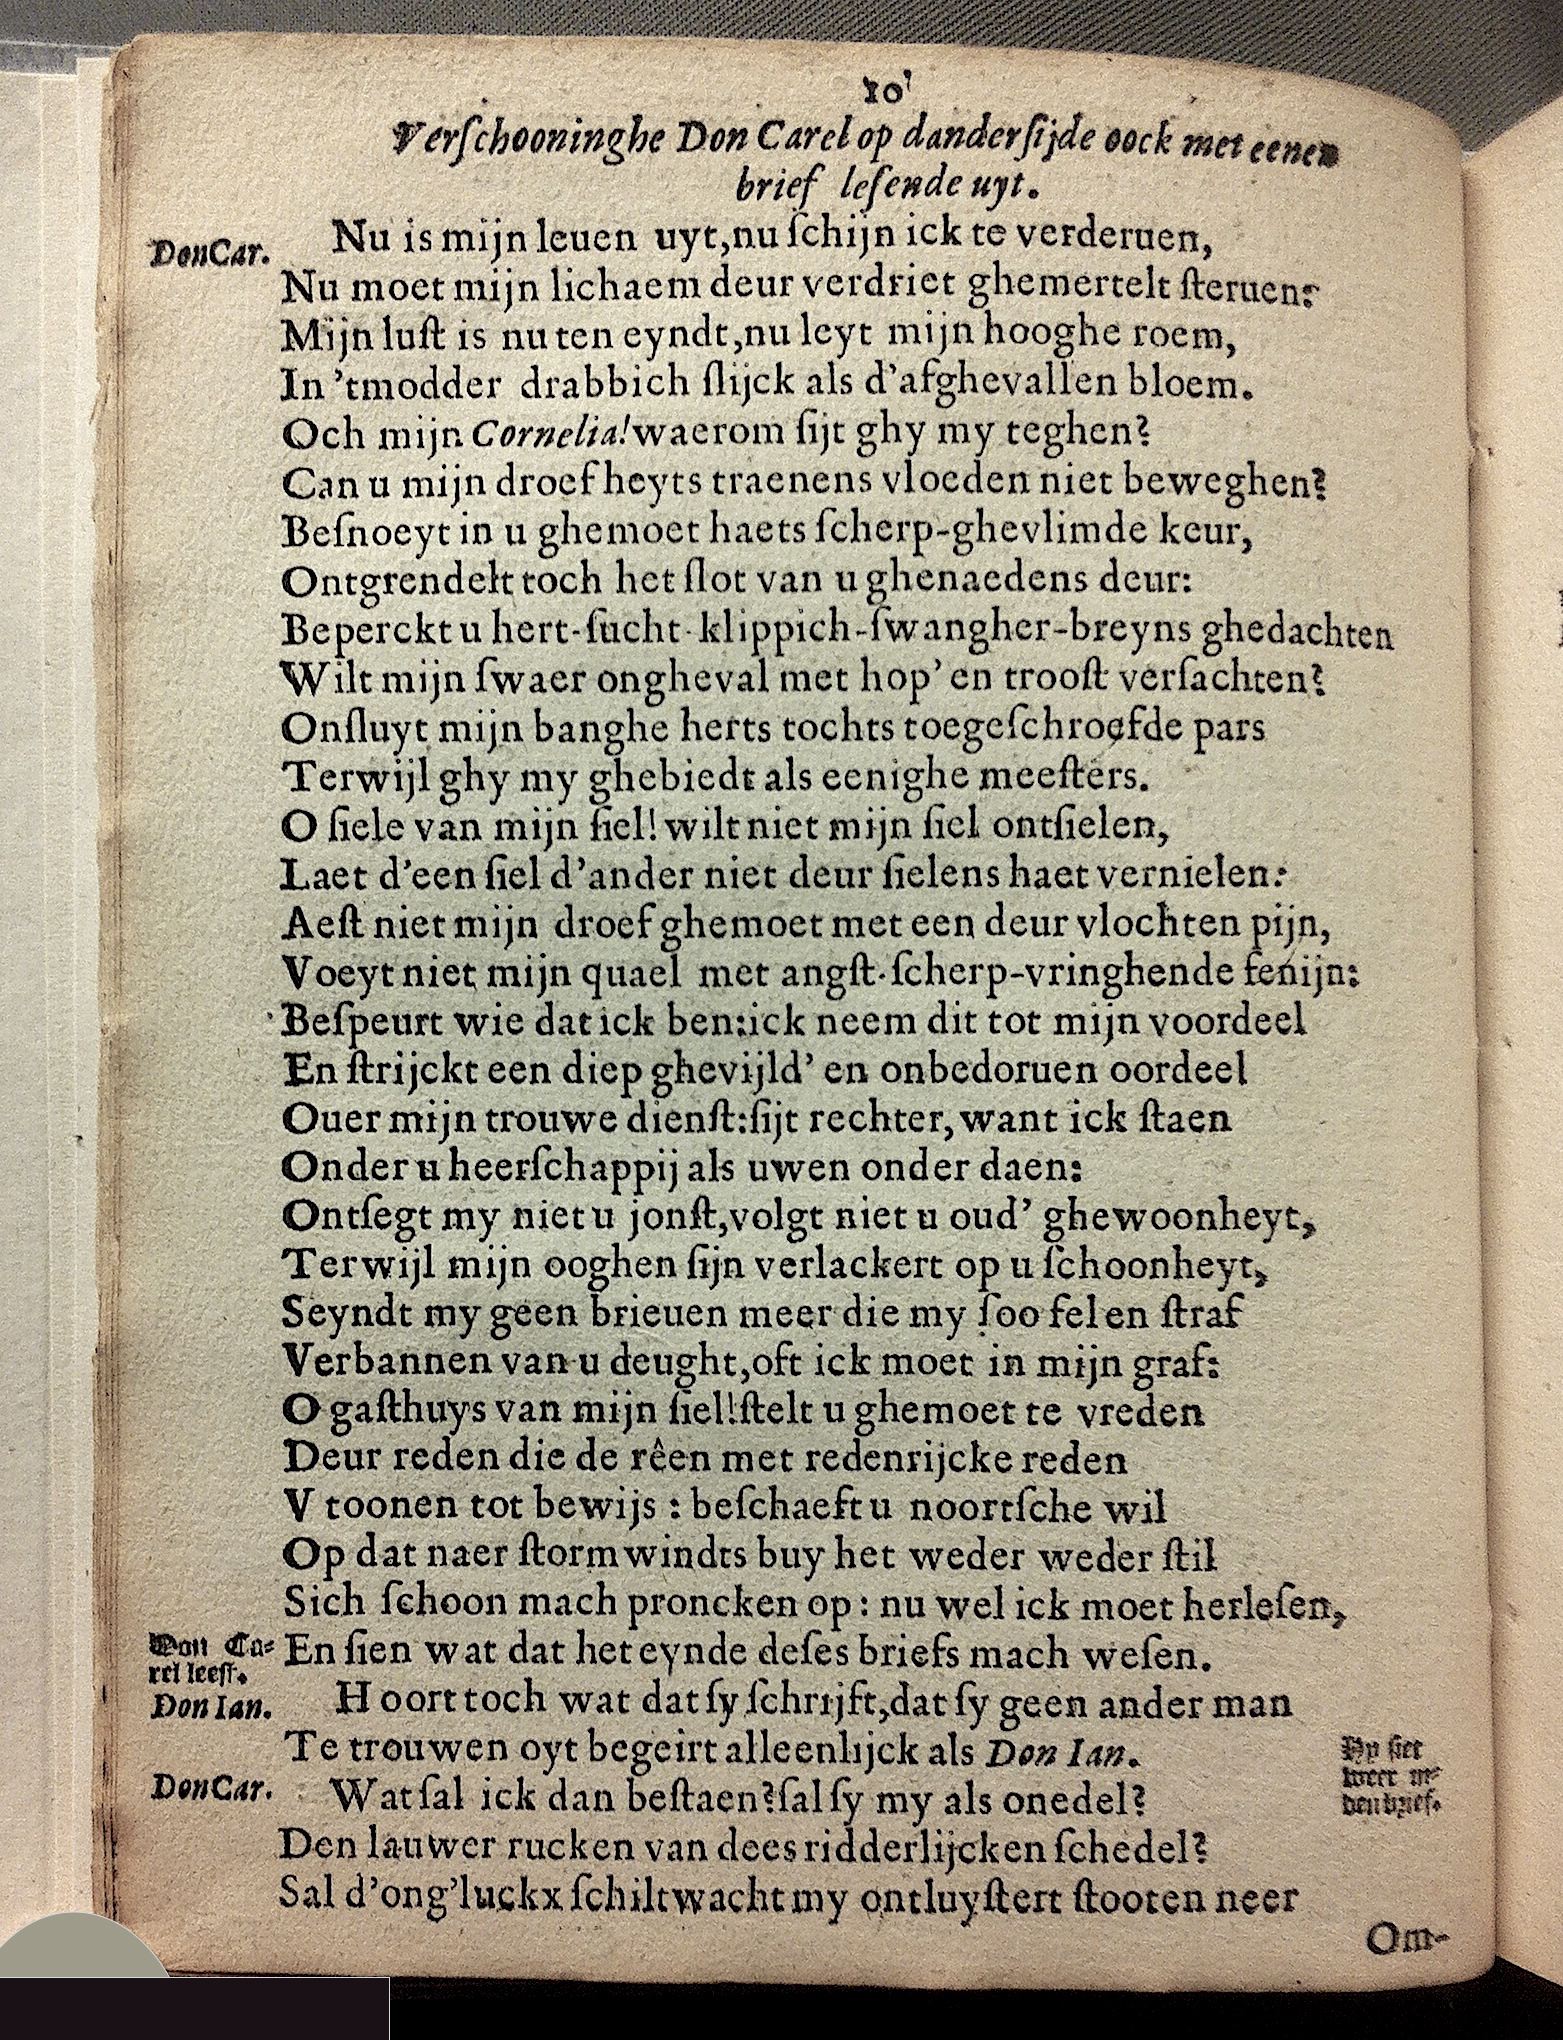 10
Verſchooninghe Don Carel op danderſijde oock met eenen
brief leſende uyt.
Don Car. Nu is mijn leuen uyt,nu ſchijn ick te verderuen,
Nu moet mijn lichaem deur verdriet ghemertelt ſteruen:
Mijn luſt is nu ten eyndt,nu leyt mijn hooghe roem,
In ’tmodder drabbich ſlijck als d’afghevallen bloem.
Och mijn Cornelia!waerom ſijt ghy my teghen?
Can u mijn droefheyts traenens vloeden niet beweghen?
Beſnoeyt in u ghemoet haets ſcherp-ghevlimde keur,
Ontgrendelt toch het ſlot van u ghenaedens deur:
Beperckt u hert-ſucht-klippich-ſwangher-breyns ghedachten
Wilt mijn ſwaer ongheval met hop’ en trooſt verſachten?
Onſluyt mijn banghe herts tochts toegeſchroefde pars
Terwijl ghy my ghebiedt als eenighe meeſters.
O ſiele van mijn ſiel! wilt niet mijn ſiel ontſielen,
Laet d’een ſiel d’ander niet deur ſielens haet vernielen:
Aeſt niet mijn droef ghemoet met een deur vlochten pijn,
Voeyt niet mijn quael met angſt-ſcherp-vringhende fenijn:
Beſpeurt wie dat ick ben:ick neem dit tot mijn voordeel
En ſtrijckt een diep ghevijld’ en onbedoruen oordeel
Ouer mijn trouwe dienſt:ſijt rechter, want ick ſtaen
Onder u heerſchappij als uwen onder daen:
Ontſegt my niet u jonſt,volgt niet u oud’ ghewoonheyt,
Terwijl mijn ooghen ſijn verlackert op u ſchoonheyt,
Seyndt my geen brieuen meer die my ſoo fel en ſtraf
Verbannen van u deught,oft ick moet in mijn graf:
O gaſthuys van mijn ſiel!ſtelt u ghemoet te vreden
Deur reden die de rêen met redenrijcke reden
V toonen tot bewijs : beſchaeft u noortſche wil
Op dat naer ſtorm windts buy het weder weder ſtil
Sich ſchoon mach proncken op : nu wel ick moet herleſen,
Don Ca-
rel leeſt. En ſien wat dat het eynde deſes briefs mach weſen.
Don Ian. Hoort toch wat dat ſy ſchrijft,dat ſy geen ander man
Te trouwen oyt begeirt alleenlijck als Don Ian.
Hy ſiet
weer in
den brief.
Don Car. Wat ſal ick dan beſtaen?ſal ſy my als onedel?
Den lauwer rucken van dees ridderlijcken ſchedel?
Sal d’ong’luckx ſchiltwacht my ontluyſtert ſtooten neer
Om-